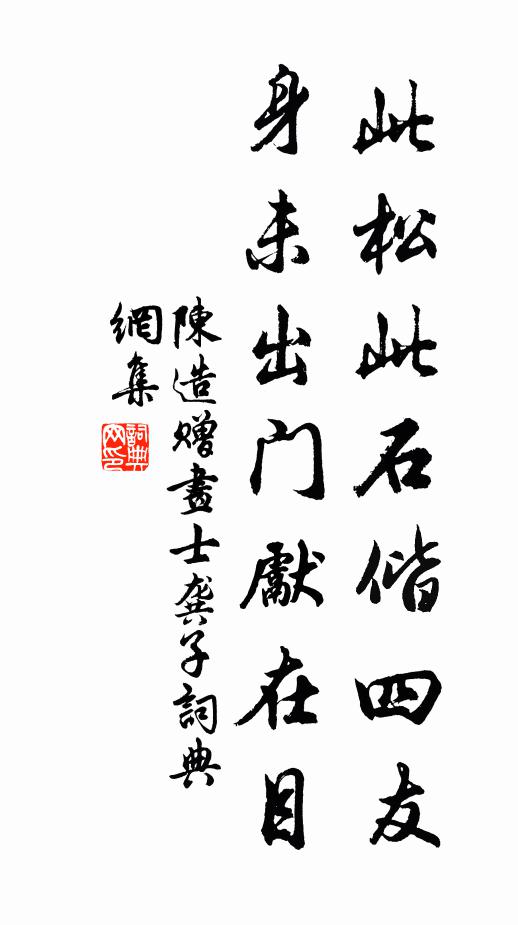 此松此石偕四友
身未出門獻在目
陳造贈畫士龔子詞典
網集
詞典
網印